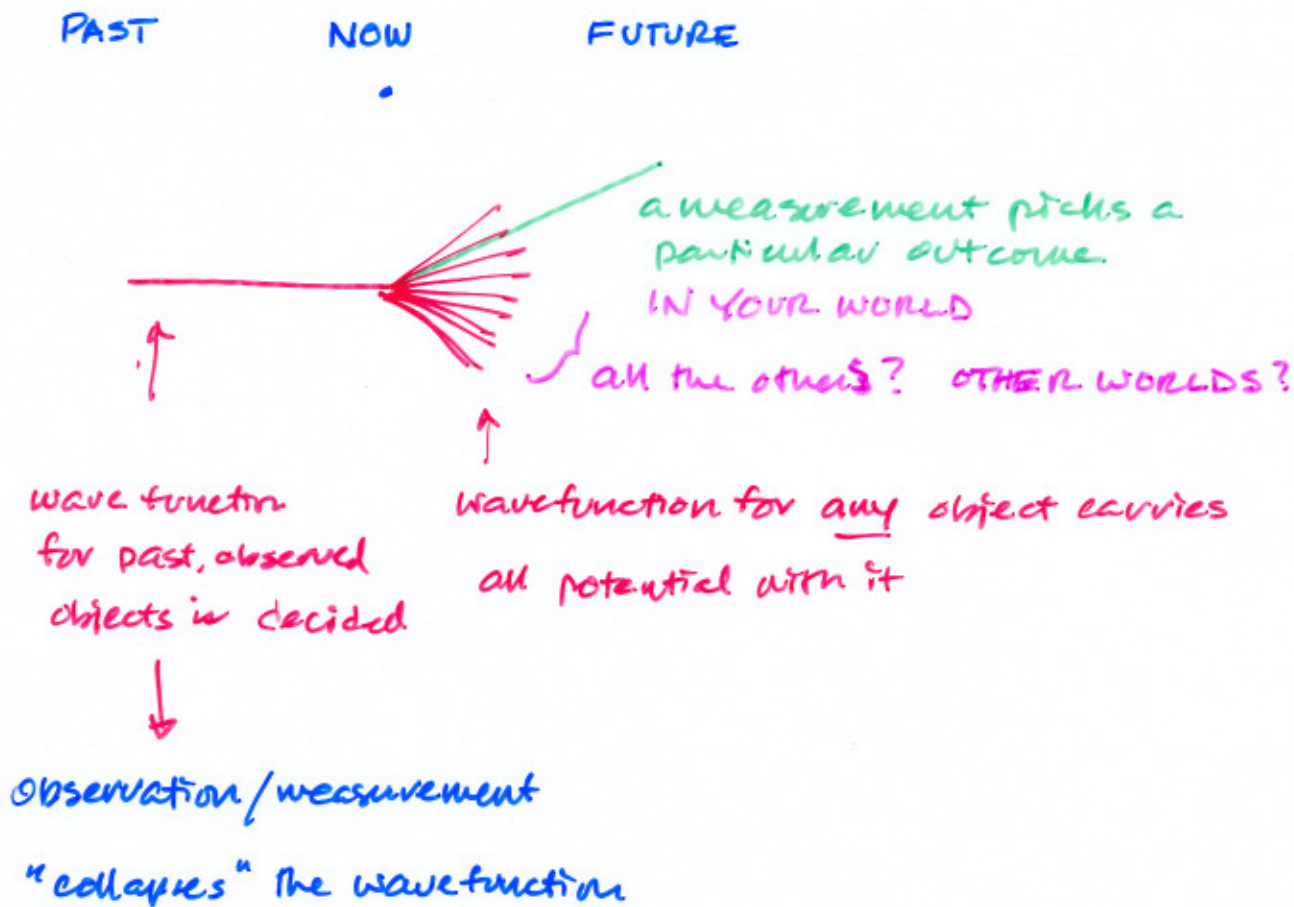 PAST NOW FUTURE
a measurement picks a
particular outcome.
IN YOUR WORLD
all the others? OTHER WORLDS?
wave function
for past, observed
objects is decided
wavefunction for any object carries
all potential with it
observation/measurement
"collapses" the wavefunction